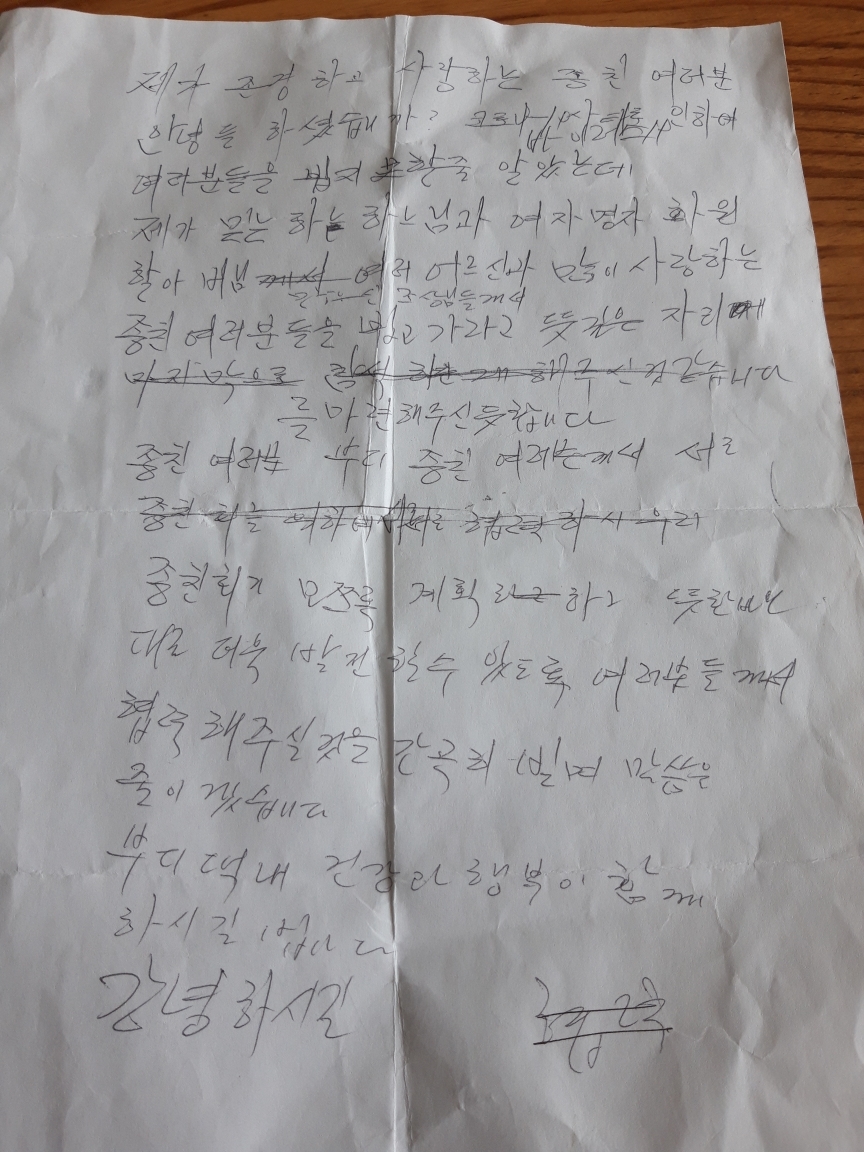 제가 존경 하고 사랑하는 종친 여러분
안녕들 하셨습니까? 인하여
여러분들을 뵙지 못할줄 알았는데
제가 믿는 하느님과 여자 명자 화원
할아버님 께서 여러 어르신과 많이 사랑하는
조상님들께서
종친 여러분들을 뵙고 가라고 뜻깊은 자리
마지막으로 참석 해주신것같습니다
를 마련해주신듯합니다
종친 여러분 부디 종친 여러분께서 서로
종친회를 위하여 서로 협력 하사 우리
종친회가 모쪼록 계획 하고 뜻한바
대로 더욱 발전 할수 있도록 여러분들께서
협력 해주실것을 간곡히 빌며 말씀을
줄이겠습니다
부디 댁내 건강과 행복이 함께
하시길 빕니다
강녕하시길
협력